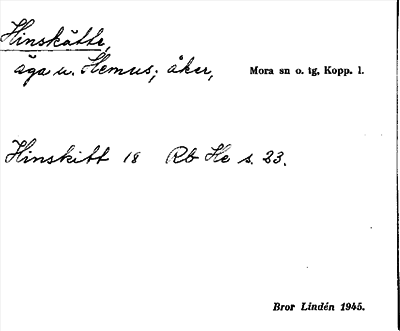 Hinskätte,
äga u. Hemus; åker, Mora sn o. tg, Kopp. l.
Hinskitt 18 Rb He s. 23.
Bror Lindén 1945.